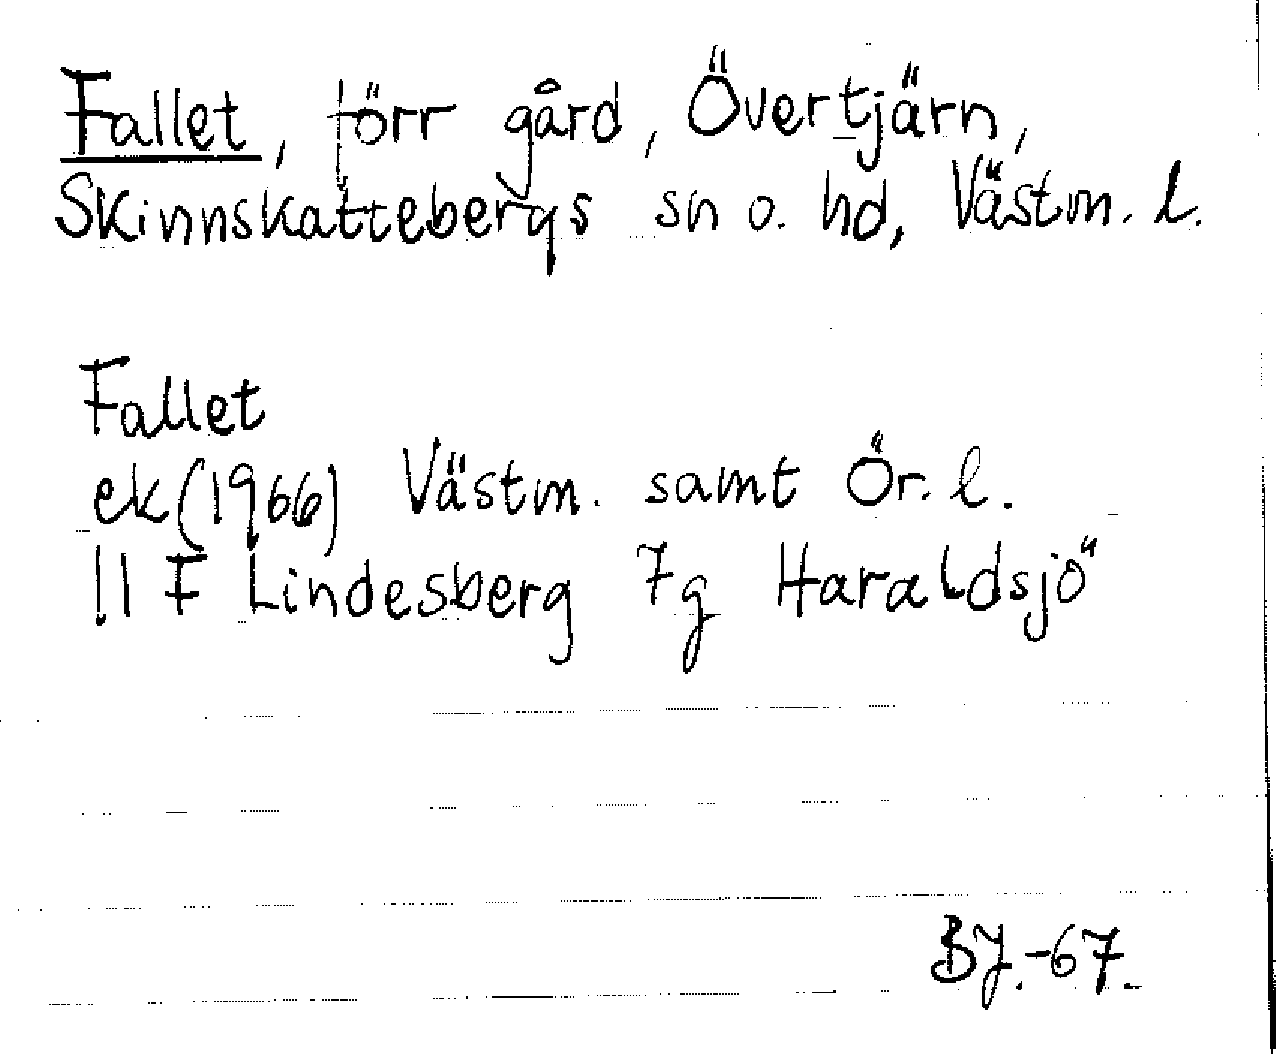 Fallet, förr gård, Övertjärn,
Skinnskattebergs sn o. hd, Västm. l.
Fallet
ek (1966) Västm. samt Ör. l.
11 F Lindesberg 7g Haraldsjö
BJ.-67.